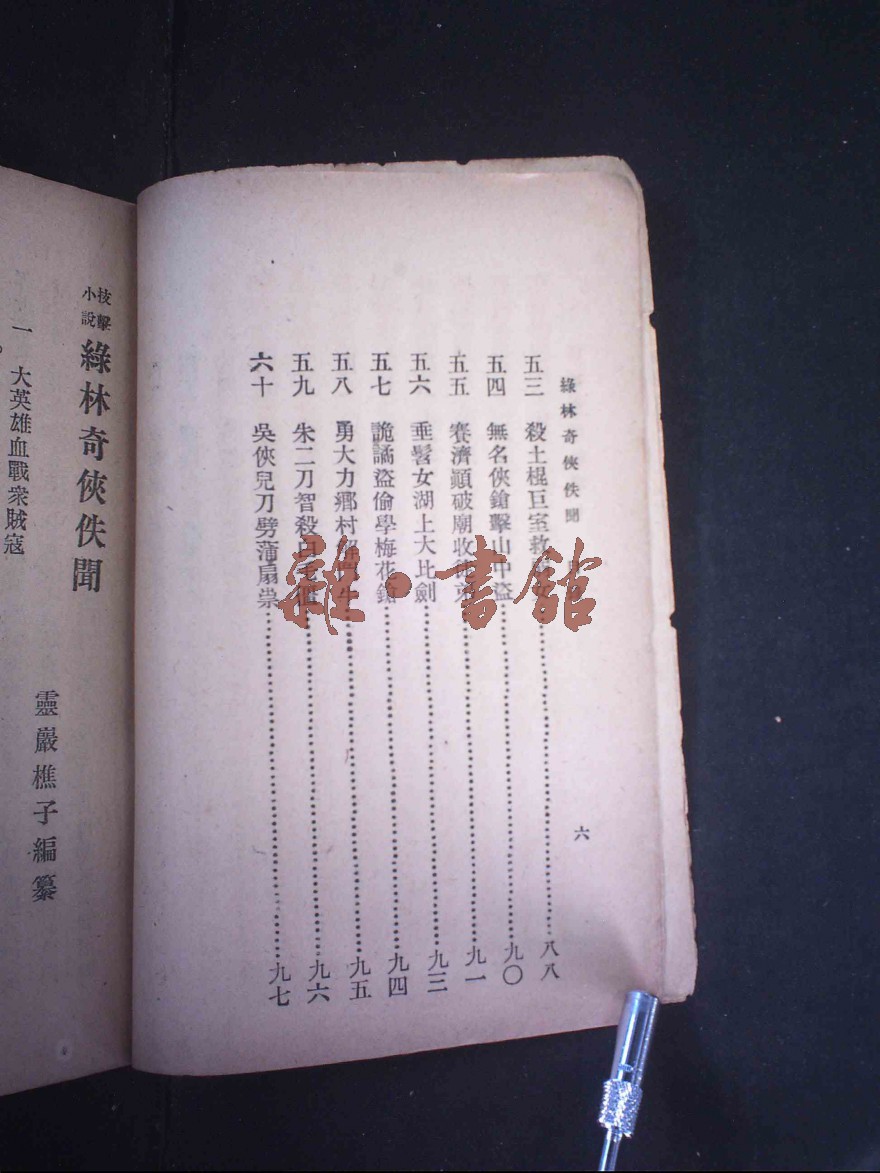 綠林奇俠佚聞
六
五三 殺土棍巨室救 八八
五四 無名俠鎗擊山中盜 九〇
五五 賽濟顚破廟收徒 九一
五六 垂髫女湖上大比劍 九三
五七 詭譎盜偷學梅花鎗 九四
五八 勇大力鄉村 牛 九五
五九 朱二刀智殺白 九六
六十 吳俠兒刀劈蒲扇祟 九七
技擊小說 綠林奇俠佚聞
靈巖樵子編纂
一 大英雄血戰衆賊寇
雜·書館